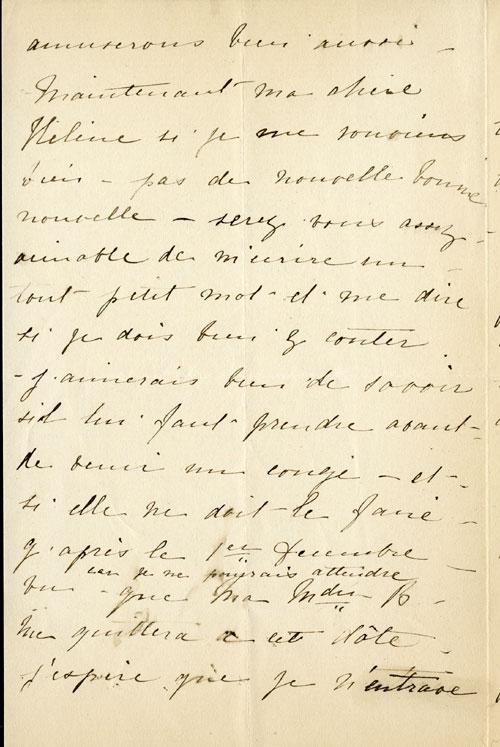 amuserons bien aussi –
Maintenant ma chère
Hélène si je me souviens
bien – pas de nouvelle bonne
nouvelle – serez vous assez
aimable de m'ecrire un
tout petit mot et me dire
si je dois bien y conter
– j'aimerais bien de savoir
s'il lui faut prendre avant
de venir un congé – et
si elle ne doit le faire
q'après le 1er Decembre –
car je ne pourrais attendre
vu – que ma Mdm B –
me quittera a cet dâte –
j'espère que je n'entrave